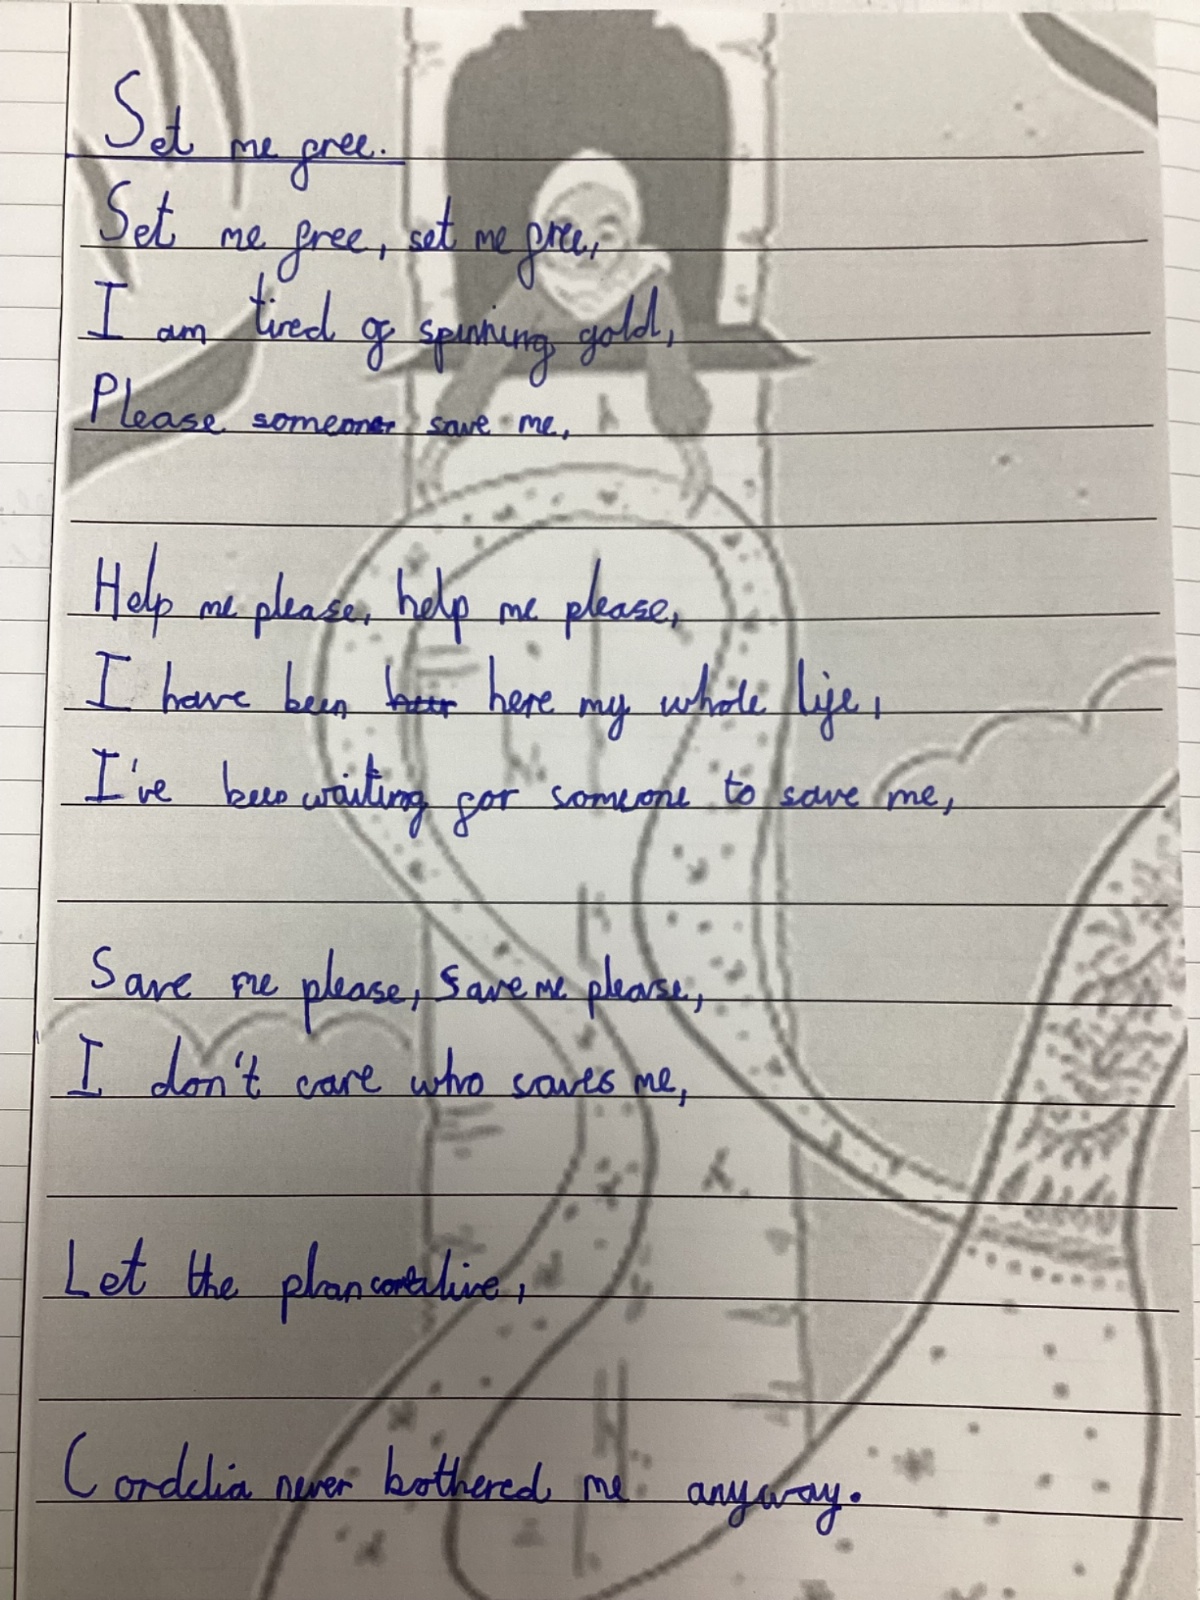 Set me free.
Set me free, set me free,
I am tired of spinning gold,
Please someone save me,
Help me please, help me please,
I have been here my whole life,
I've been waiting for someone to save me,
Save me please, save me please,
I don't care who saves me,
Let the plan come alive,
Cordelia never bothered me anyway.